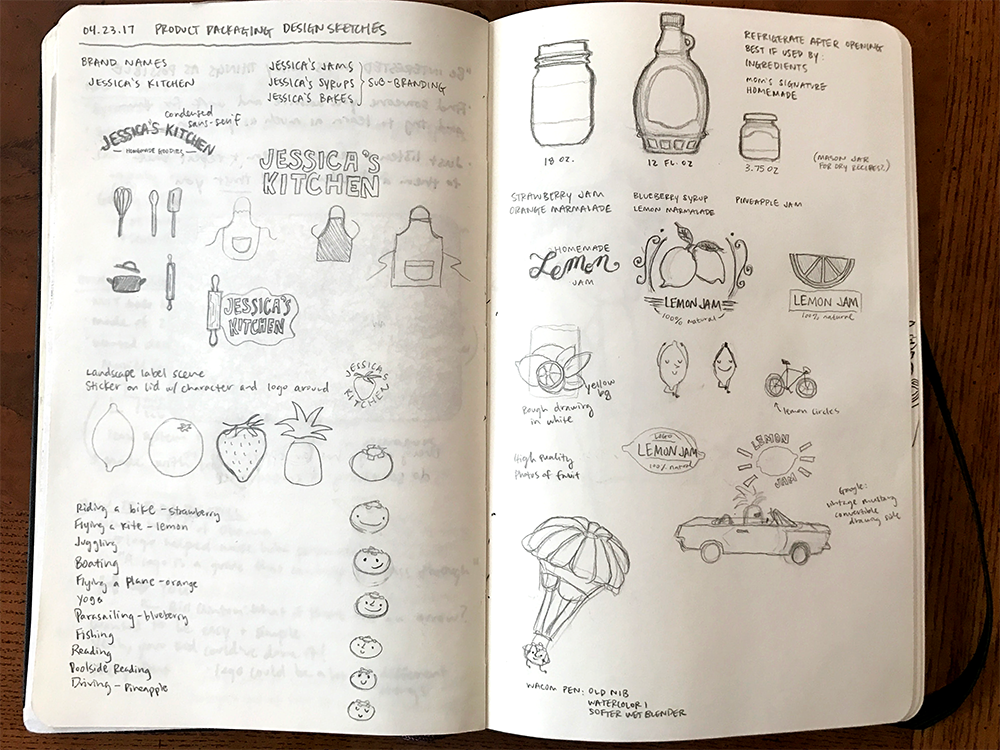 04.23.17 PRODUCT PACKAGING DESIGN SKETCHES
BRAND NAMES
JESSICA'S KITCHEN
JESSICA'S JAMS
JESSICA'S SYRUPS
JESSICA'S BAKES
SUB-BRANDING
condensed
sans-serif
JESSICA'S KITCHEN
HOMEMADE GOODIES
JESSICA'S
KITCHEN
JESSICA'S
KITCHEN
Landscape label scene
Sticker on lid w/ character and logo around
JESSICA'S
KITCHEN
Riding a bike - strawberry
Flying a kite - lemon
Juggling
Boating
Flying a plane - orange
Yoga
Parasailing - blueberry
Fishing
Reading
Poolside Reading
Driving - pineapple
REFRIGERATE AFTER OPENING
BEST IF USED BY:
INGREDIENTS
MOM'S SIGNATURE
HOMEMADE
18 OZ.
12 FL. OZ
3.75 OZ
(MASON JAR
FOR DRY RECIPES?)
STRAWBERRY JAM
ORANGE MARMALADE
BLUEBERRY SYRUP
LEMON MARMALADE
PINEAPPLE JAM
HOMEMADE
Lemon
JAM
LEMON JAM
100% natural
LEMON JAM
100% natural
yellow
bg
Rough drawing
in white
lemon circles
High Quality
Photos of fruit
LOGO
LEMON JAM
100% natural
LEMON
JAM
Google:
vintage mustang
convertible
drawing side
WACOM PEN: OLD NIB
WATERCOLOR 1
SOFTER WET BLENDER